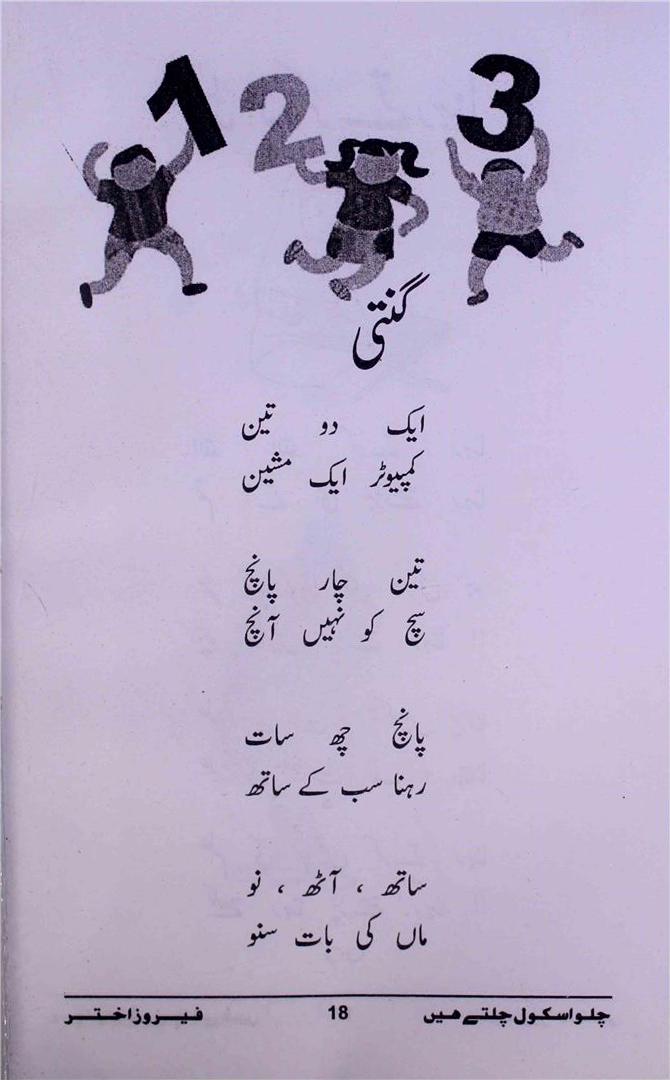 1 2 3
گنتی
ایک دو تین
کمپیوٹر ایک مشین
تین چار پانچ
سچ کو نہیں آنچ
پانچ چھ سات
رہنا سب کے ساتھ
ساتھ ، آٹھ ، نو
ماں کی بات سنو
چلو اسکول چلتے ہیں 18 فیروز اختر